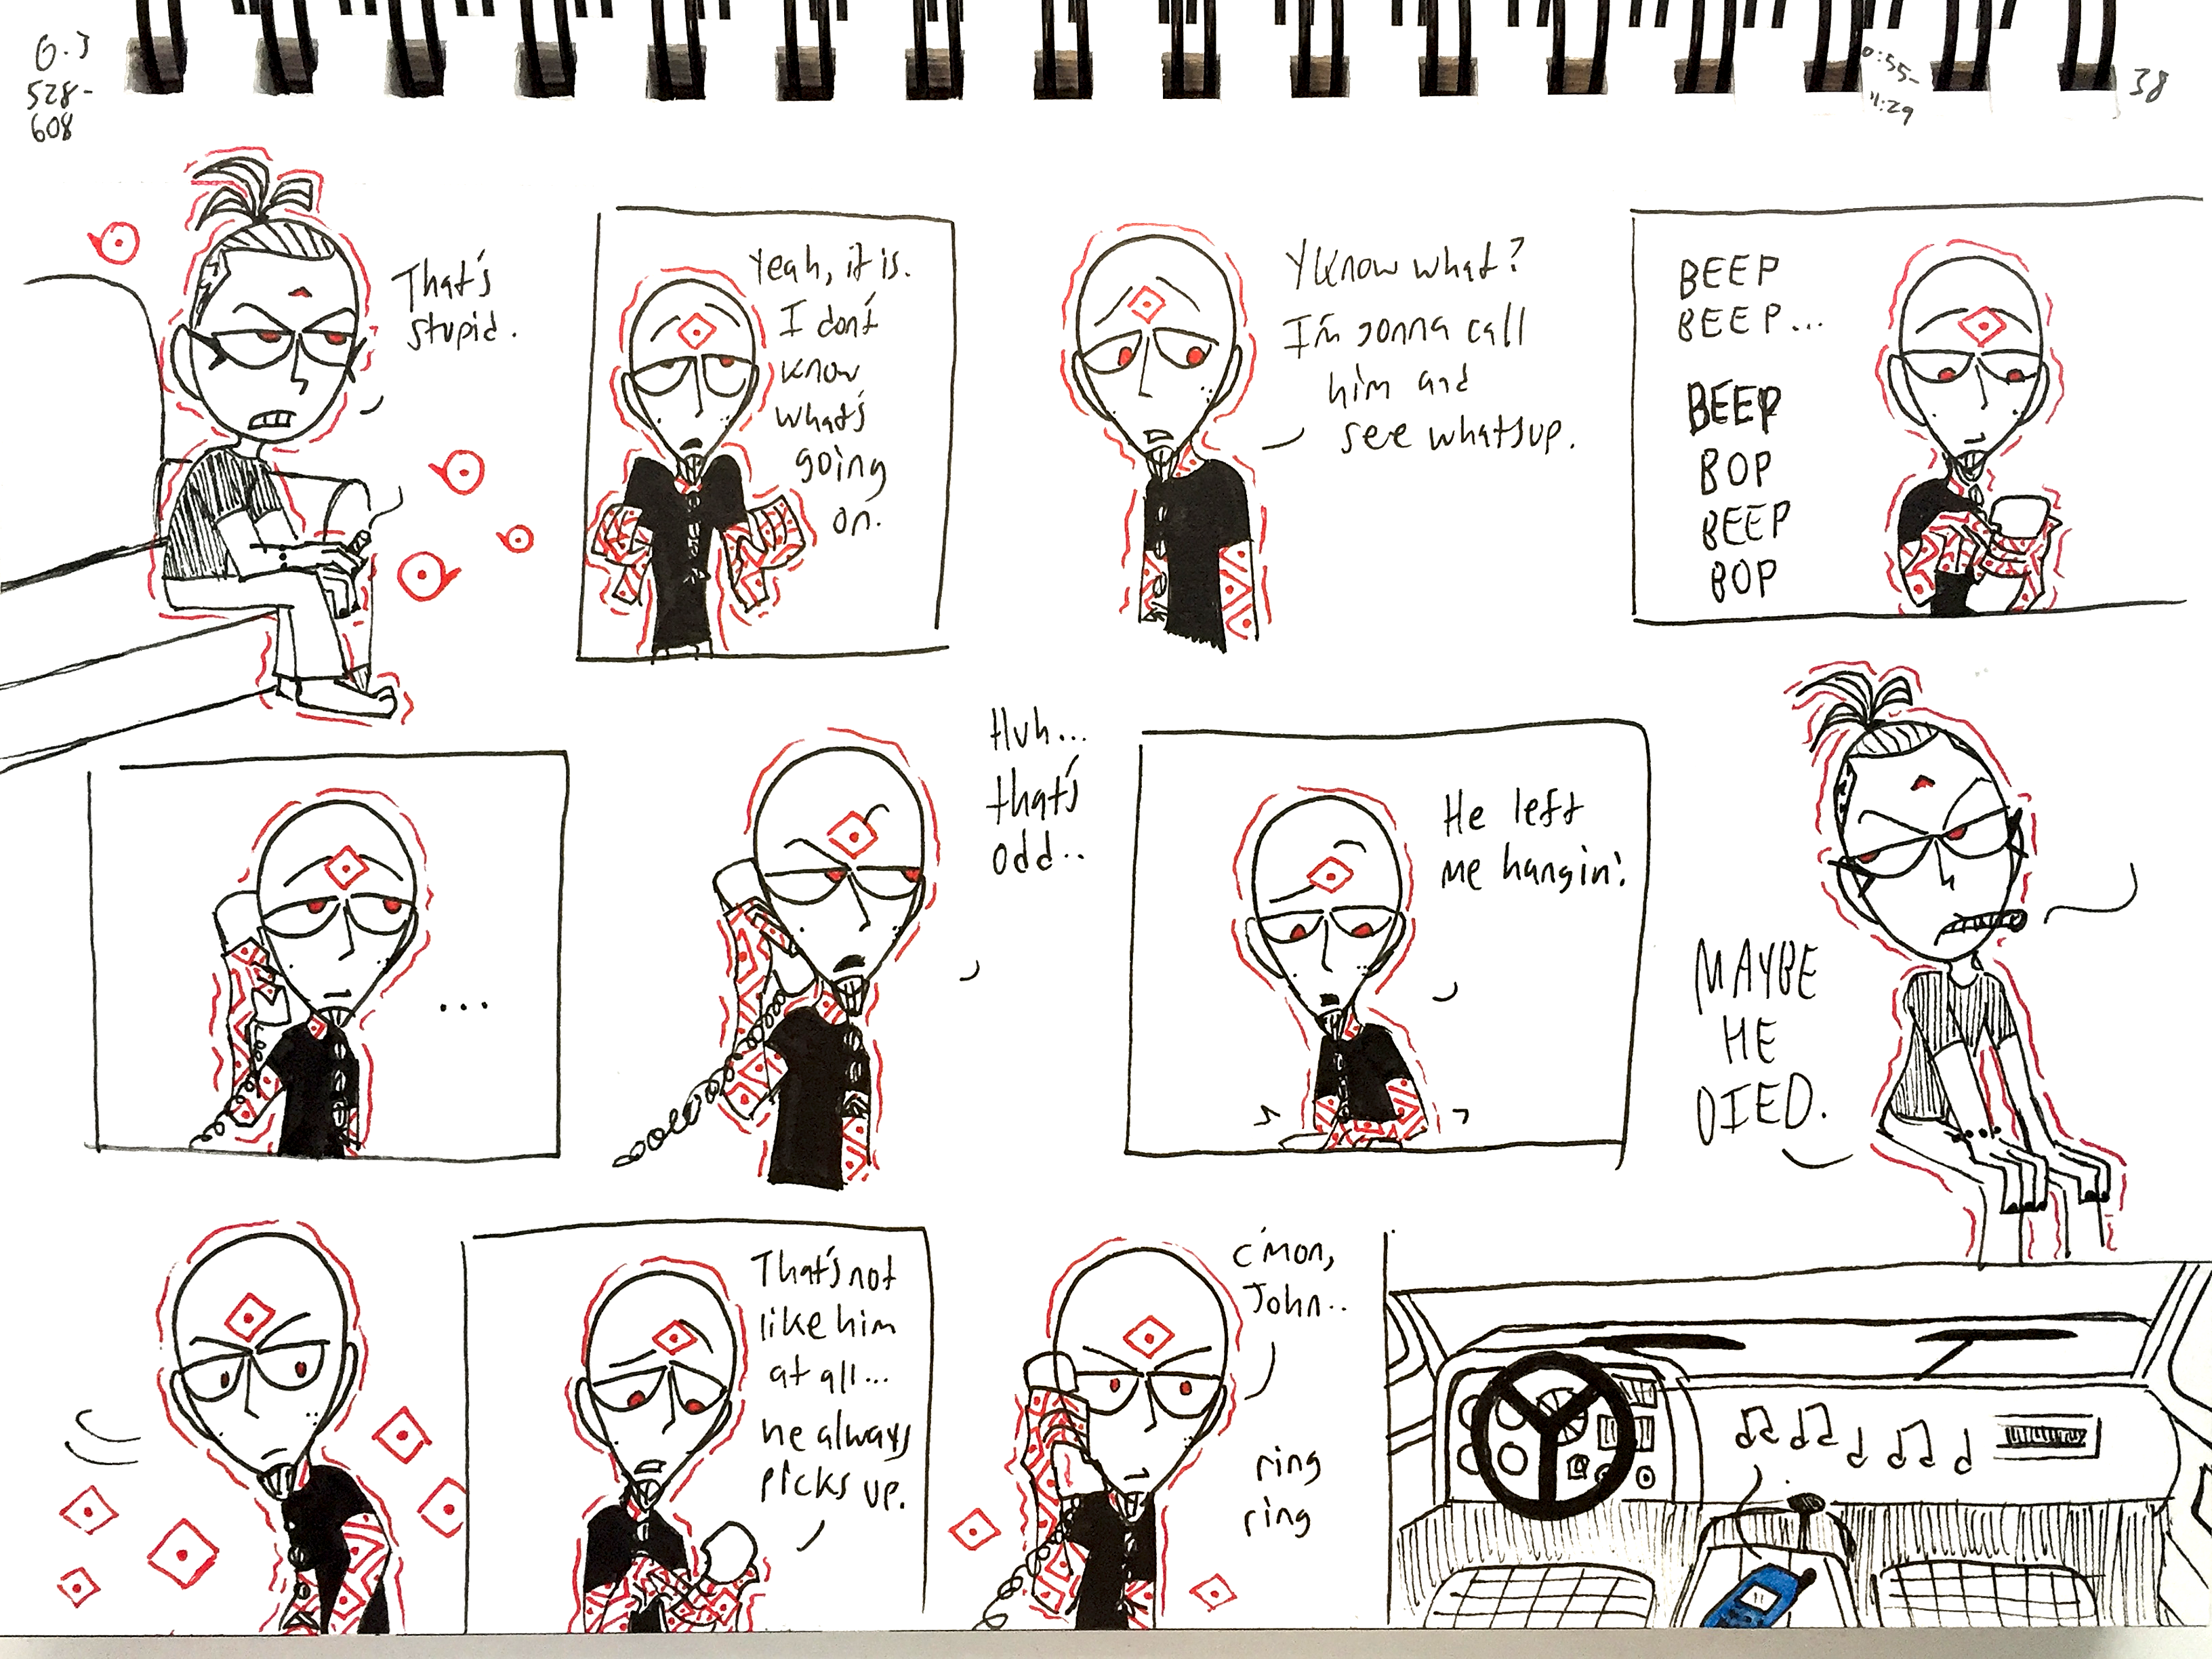 6.3
528-
608
0:55-
11:29
38
That's
stupid.
Yeah, it is.
I don't
know
what's
going
on.
Y'know what?
I'm gonna call
him and
see whatsup.
BEEP
BEEP...
BEEP
BOP
BEEP
BOP
...
Huh...
that's
odd..
He left
me hangin'.
MAYBE
HE
DIED.
That's not
like him
at all...
he always
picks up.
C'mon,
John..
ring
ring